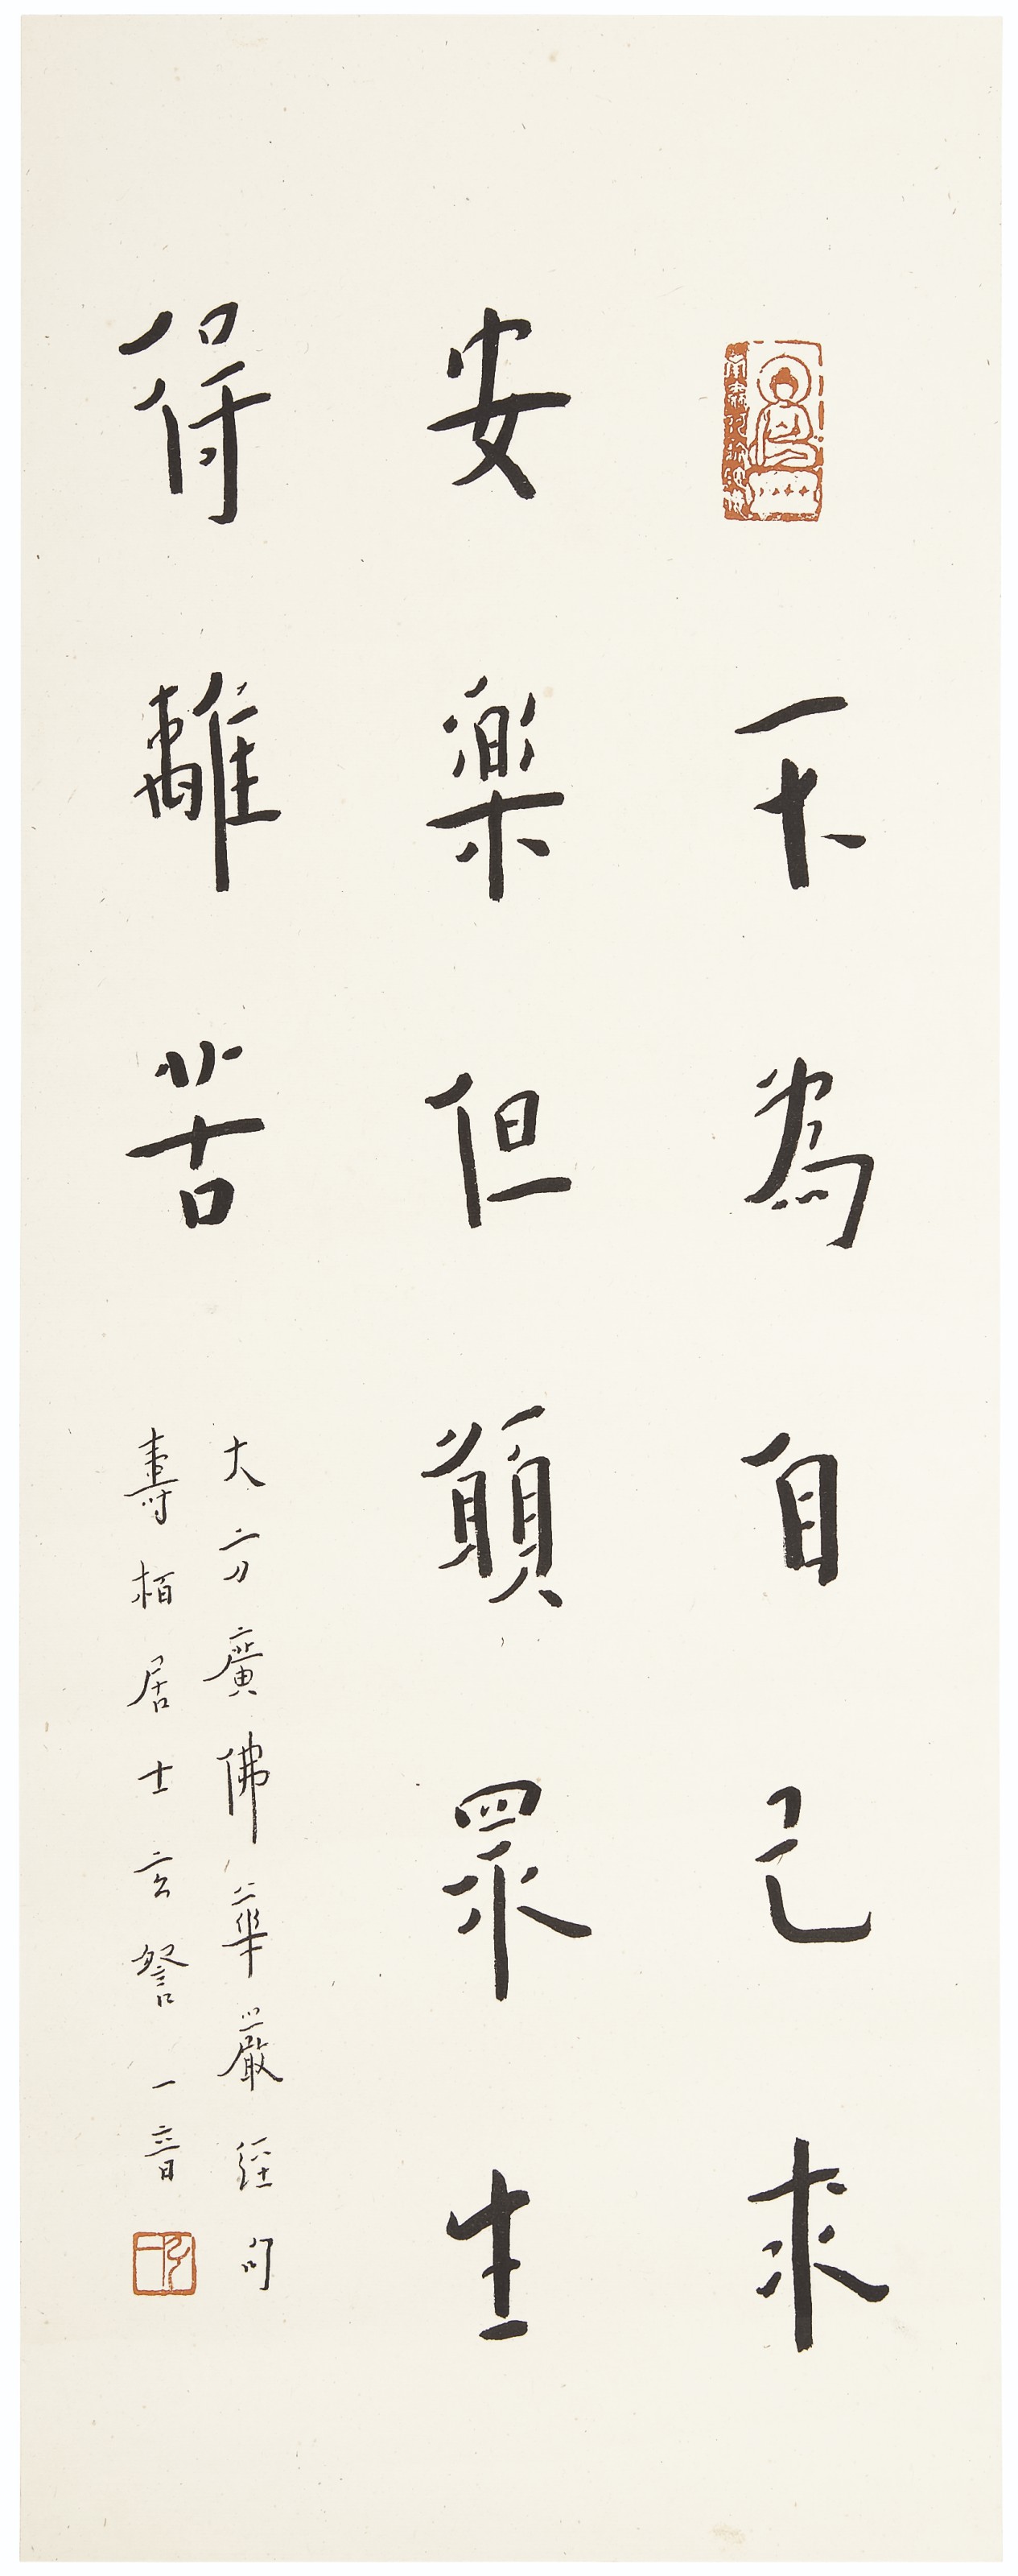 不為自己求
安樂但願眾生
得離苦
大方廣佛華嚴經句
壽栢居士玄詧一音